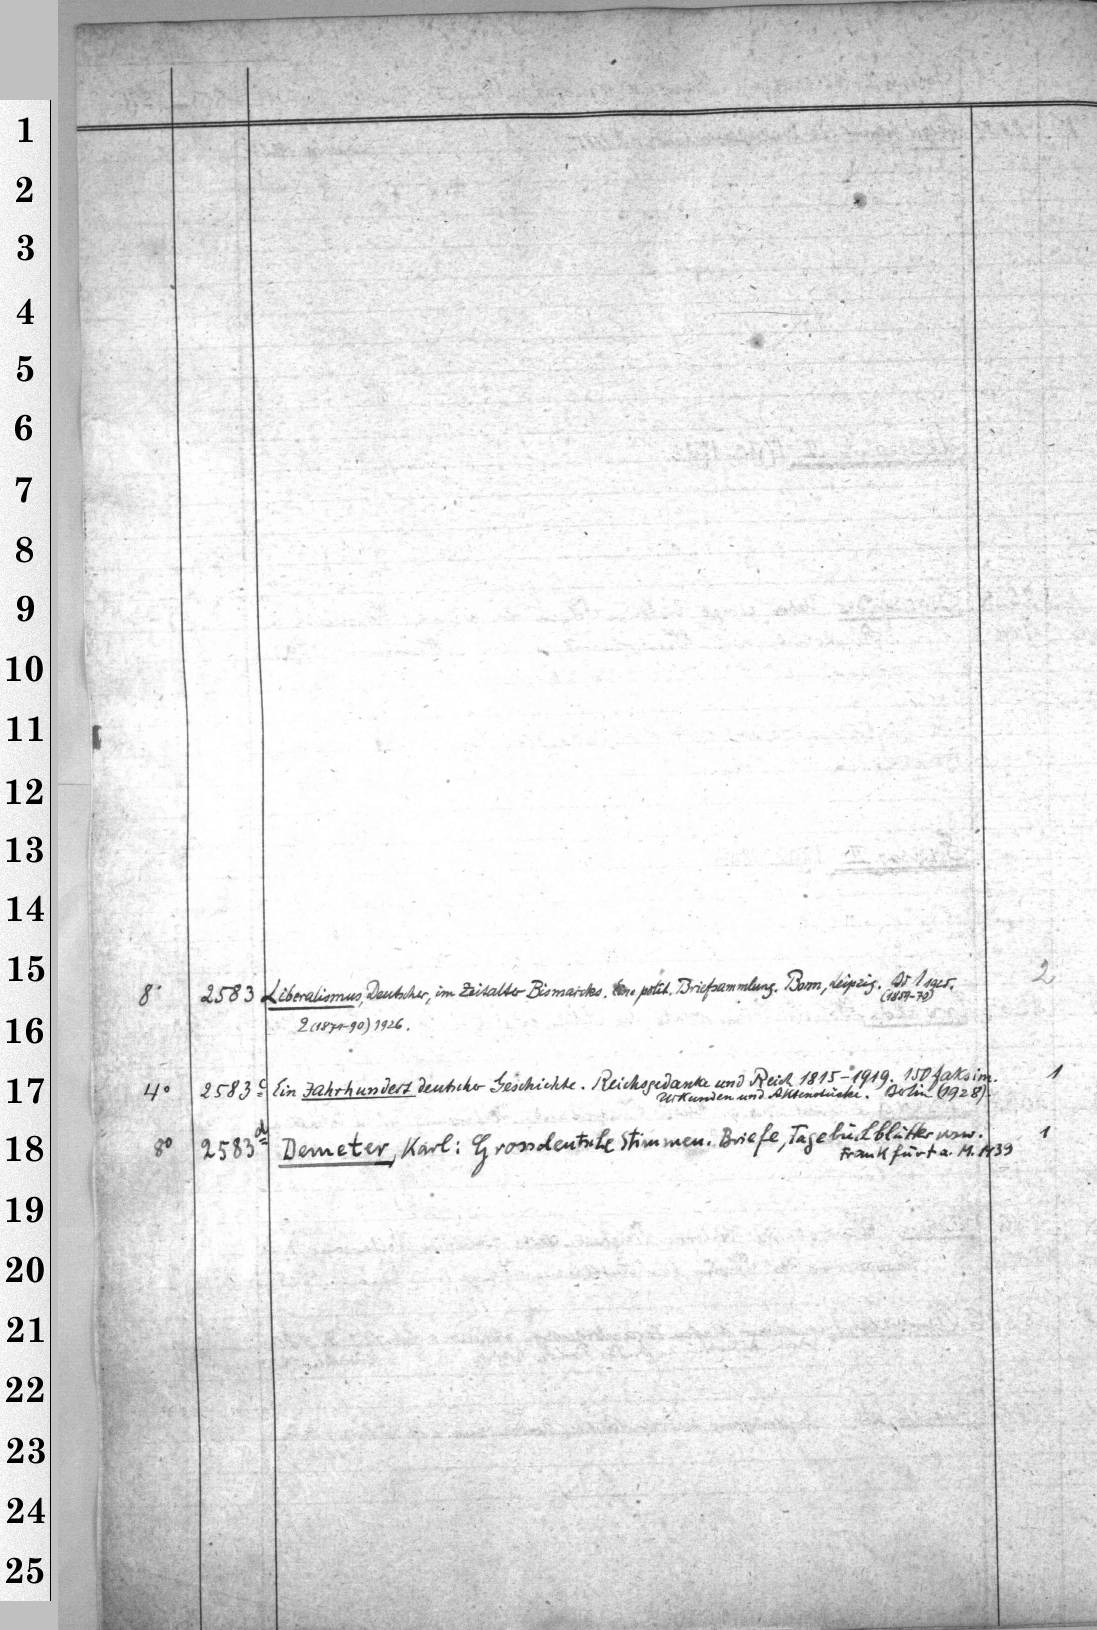 1
2
3
4
5
6
7
8
9
10
11
12
13
14
15
8° 2583 Liberalismus, Deutscher, im Zeitalter Bismarcks. Eine polit. Briefsammlung. Bonn, Leipzig. Bd 1 1925. 2
(1859-70)
16
2 (1871-90) 1926.
17
4° 2583 c Ein Jahrhundert deutscher Geschichte. Reichsgedanke und Reich 1815-1919. 150 faksim. 1
Urkunden und Aktenstücke. Berlin (1928).
18
8° 2583 d Demeter, Karl: Grossdeutsche Stimmen. Briefe, Tagebuchblätter usw. 1
Frankfurt a. M. 1939
19
20
21
22
23
24
25